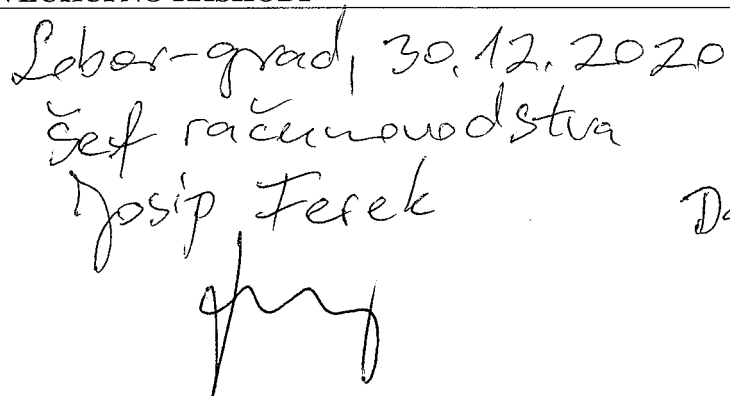 Lobor-grad, 30.12.2020
šef računovodstva
Josip Ferek